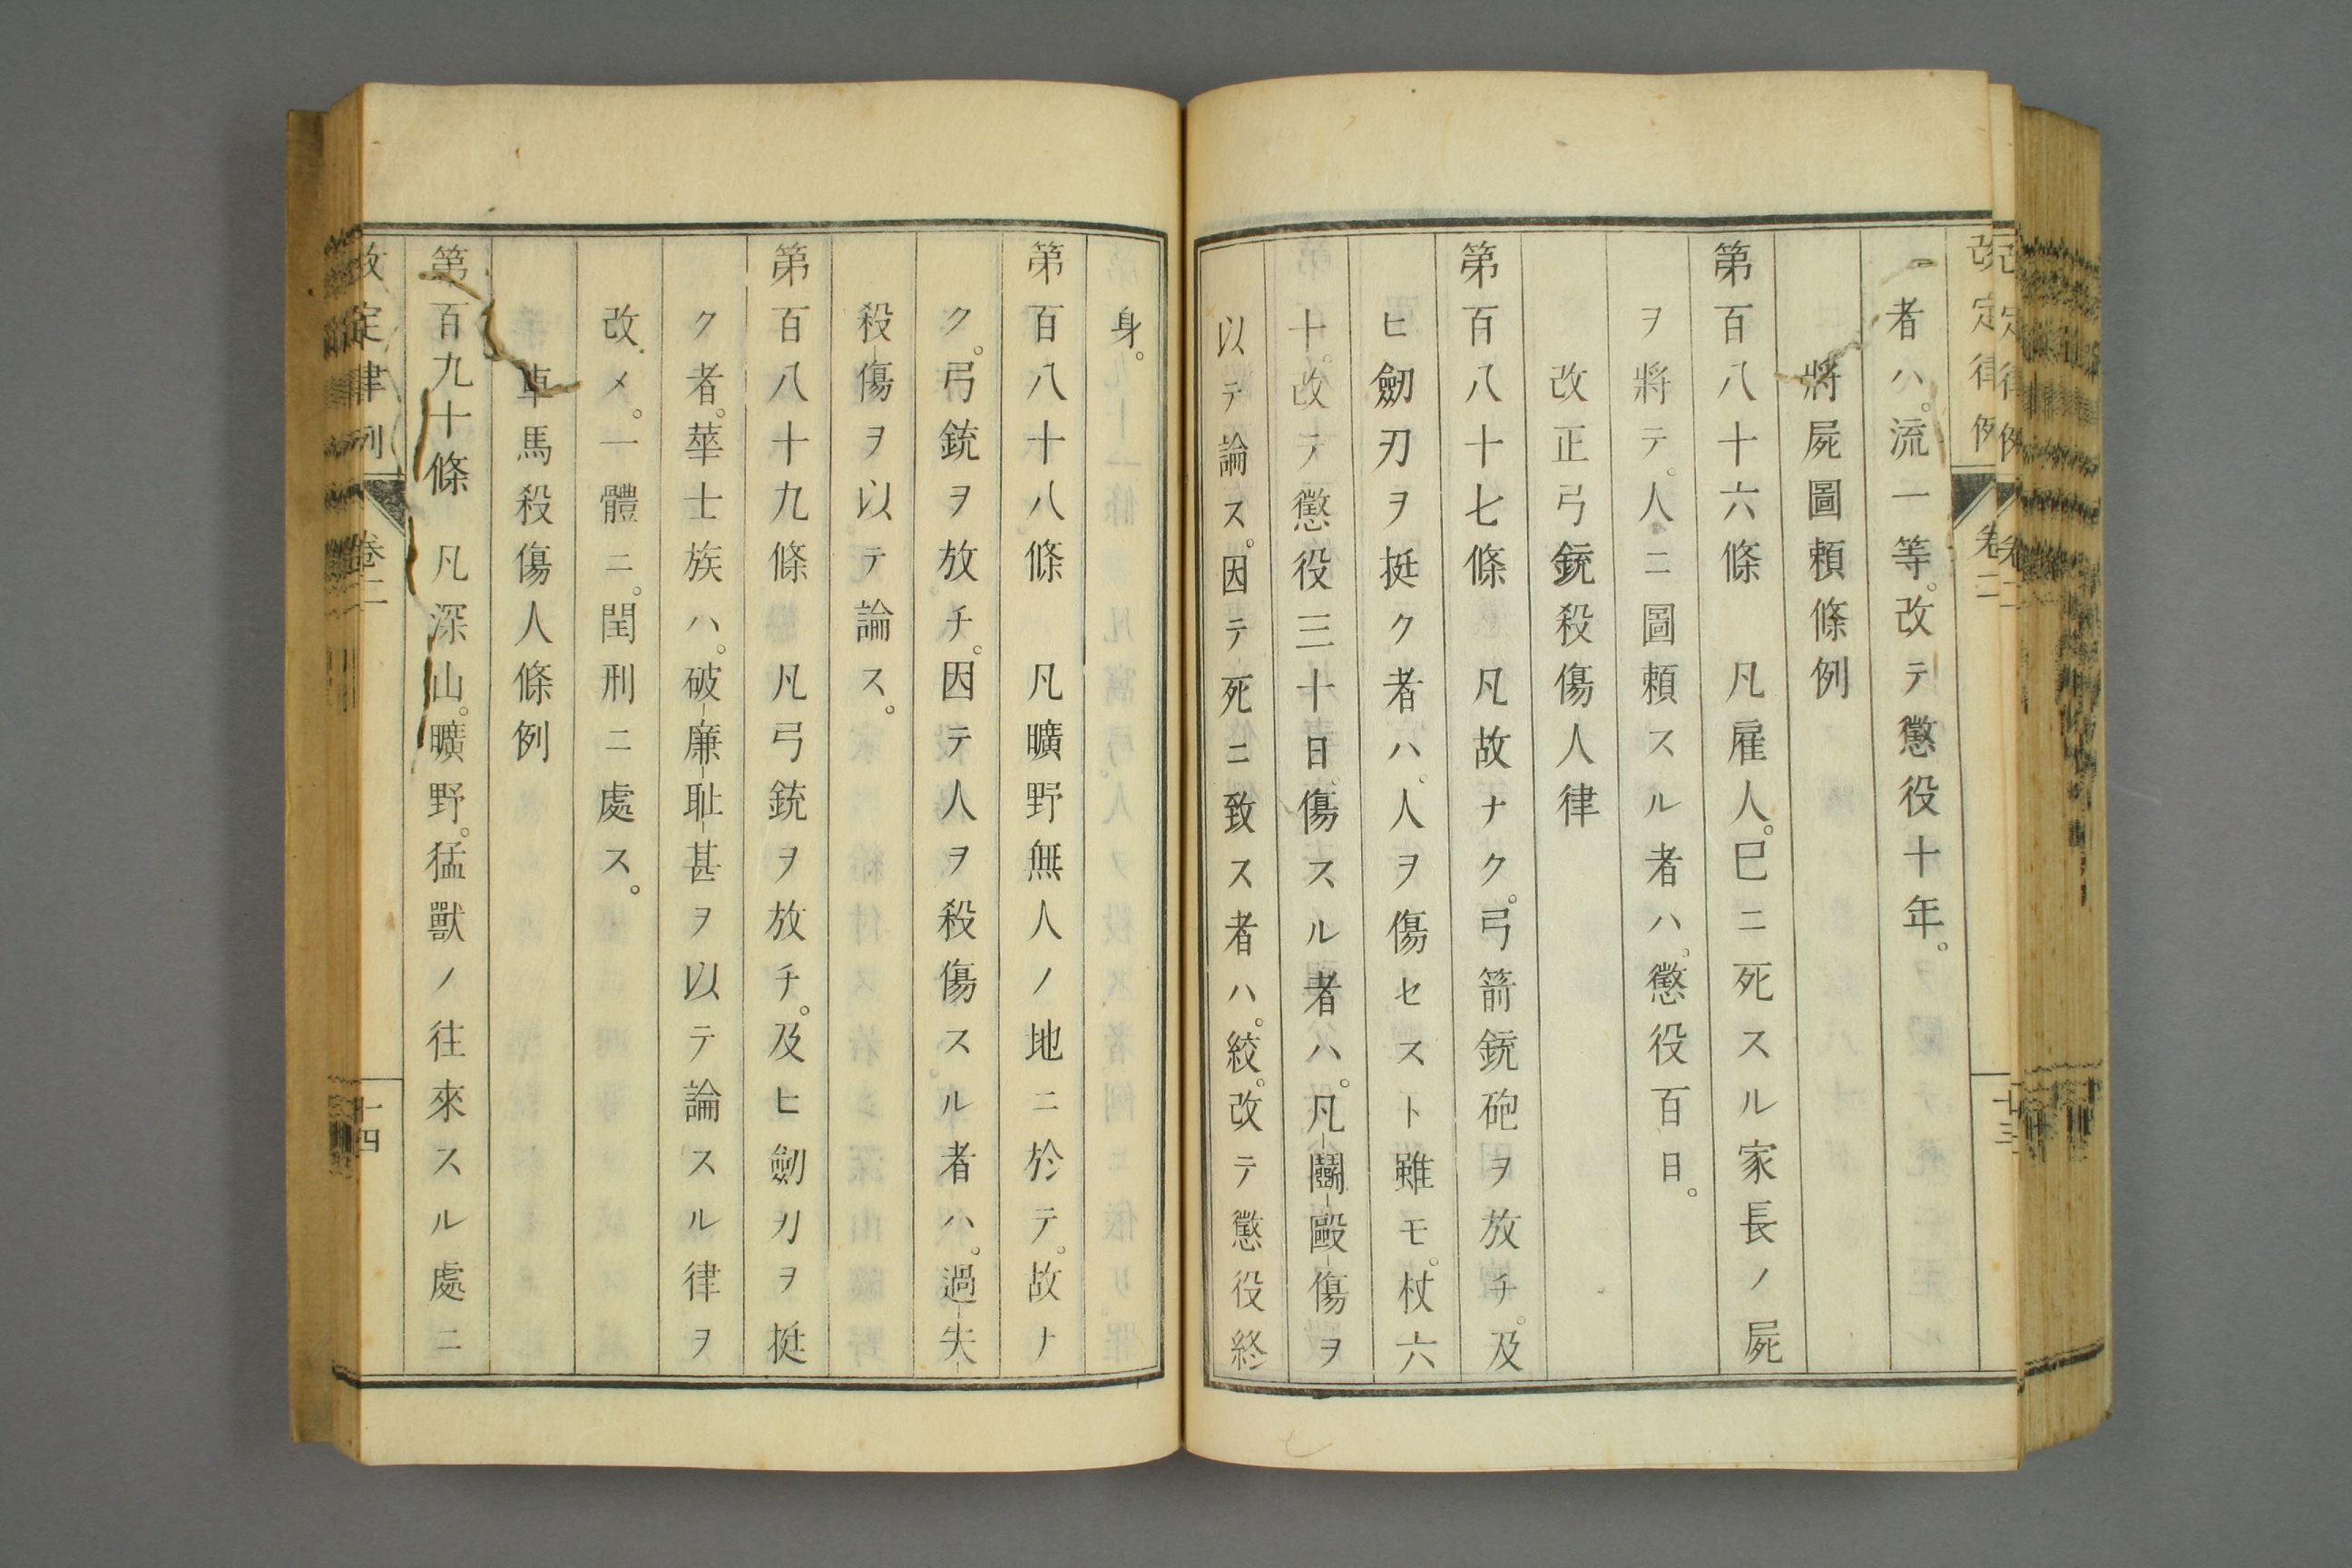 改定律例 卷二 十三
者ハ。流一等。改テ懲役十年。
將屍圖賴條例
第百八十六條 凡雇人。巳ニ死スル家長ノ屍
ヲ將テ。人ニ圖賴スル者ハ。懲役百日。
改正弓銃殺傷人律
第百八十七條 凡故ナク。弓箭銃砲ヲ放チ。及
ヒ劒刃ヲ挺ク者ハ。人ヲ傷セスト雖モ。杖六
十。改テ懲役三十日。傷スル者ハ。凡鬪毆傷ヲ
以テ論ス。因テ死ニ致ス者ハ。絞。改テ懲役終
身。
第百八十八條 凡曠野無人ノ地ニ於テ。故ナ
ク。弓銃ヲ放チ。因テ人ヲ殺傷スル者ハ。過失
殺傷ヲ以テ論ス。
第百八十九條 凡弓銃ヲ放チ。及ヒ劒刀ヲ挺
ク者。華士族ハ。破廉耻甚ヲ以テ論スル律ヲ
改メ。一體ニ。閏刑ニ處ス。
車馬殺傷人條例
第百九十條 凡深山。曠野。猛獸ノ往來スル處ニ
改定律例 卷二 十四